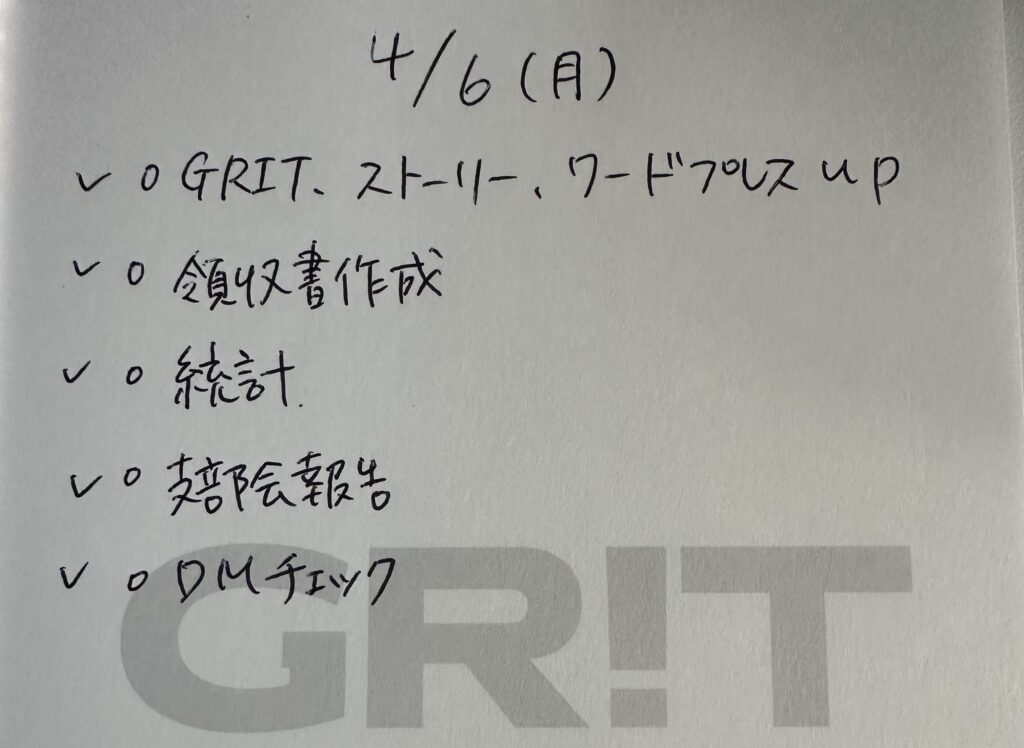 4/6(月)
✓ ○ GRIT、ストーリー、ワードプレスup
✓ ○ 領収書作成
✓ ○ 統計.
✓ ○ 支部会報告
✓ ○ DMチェック
GR!T